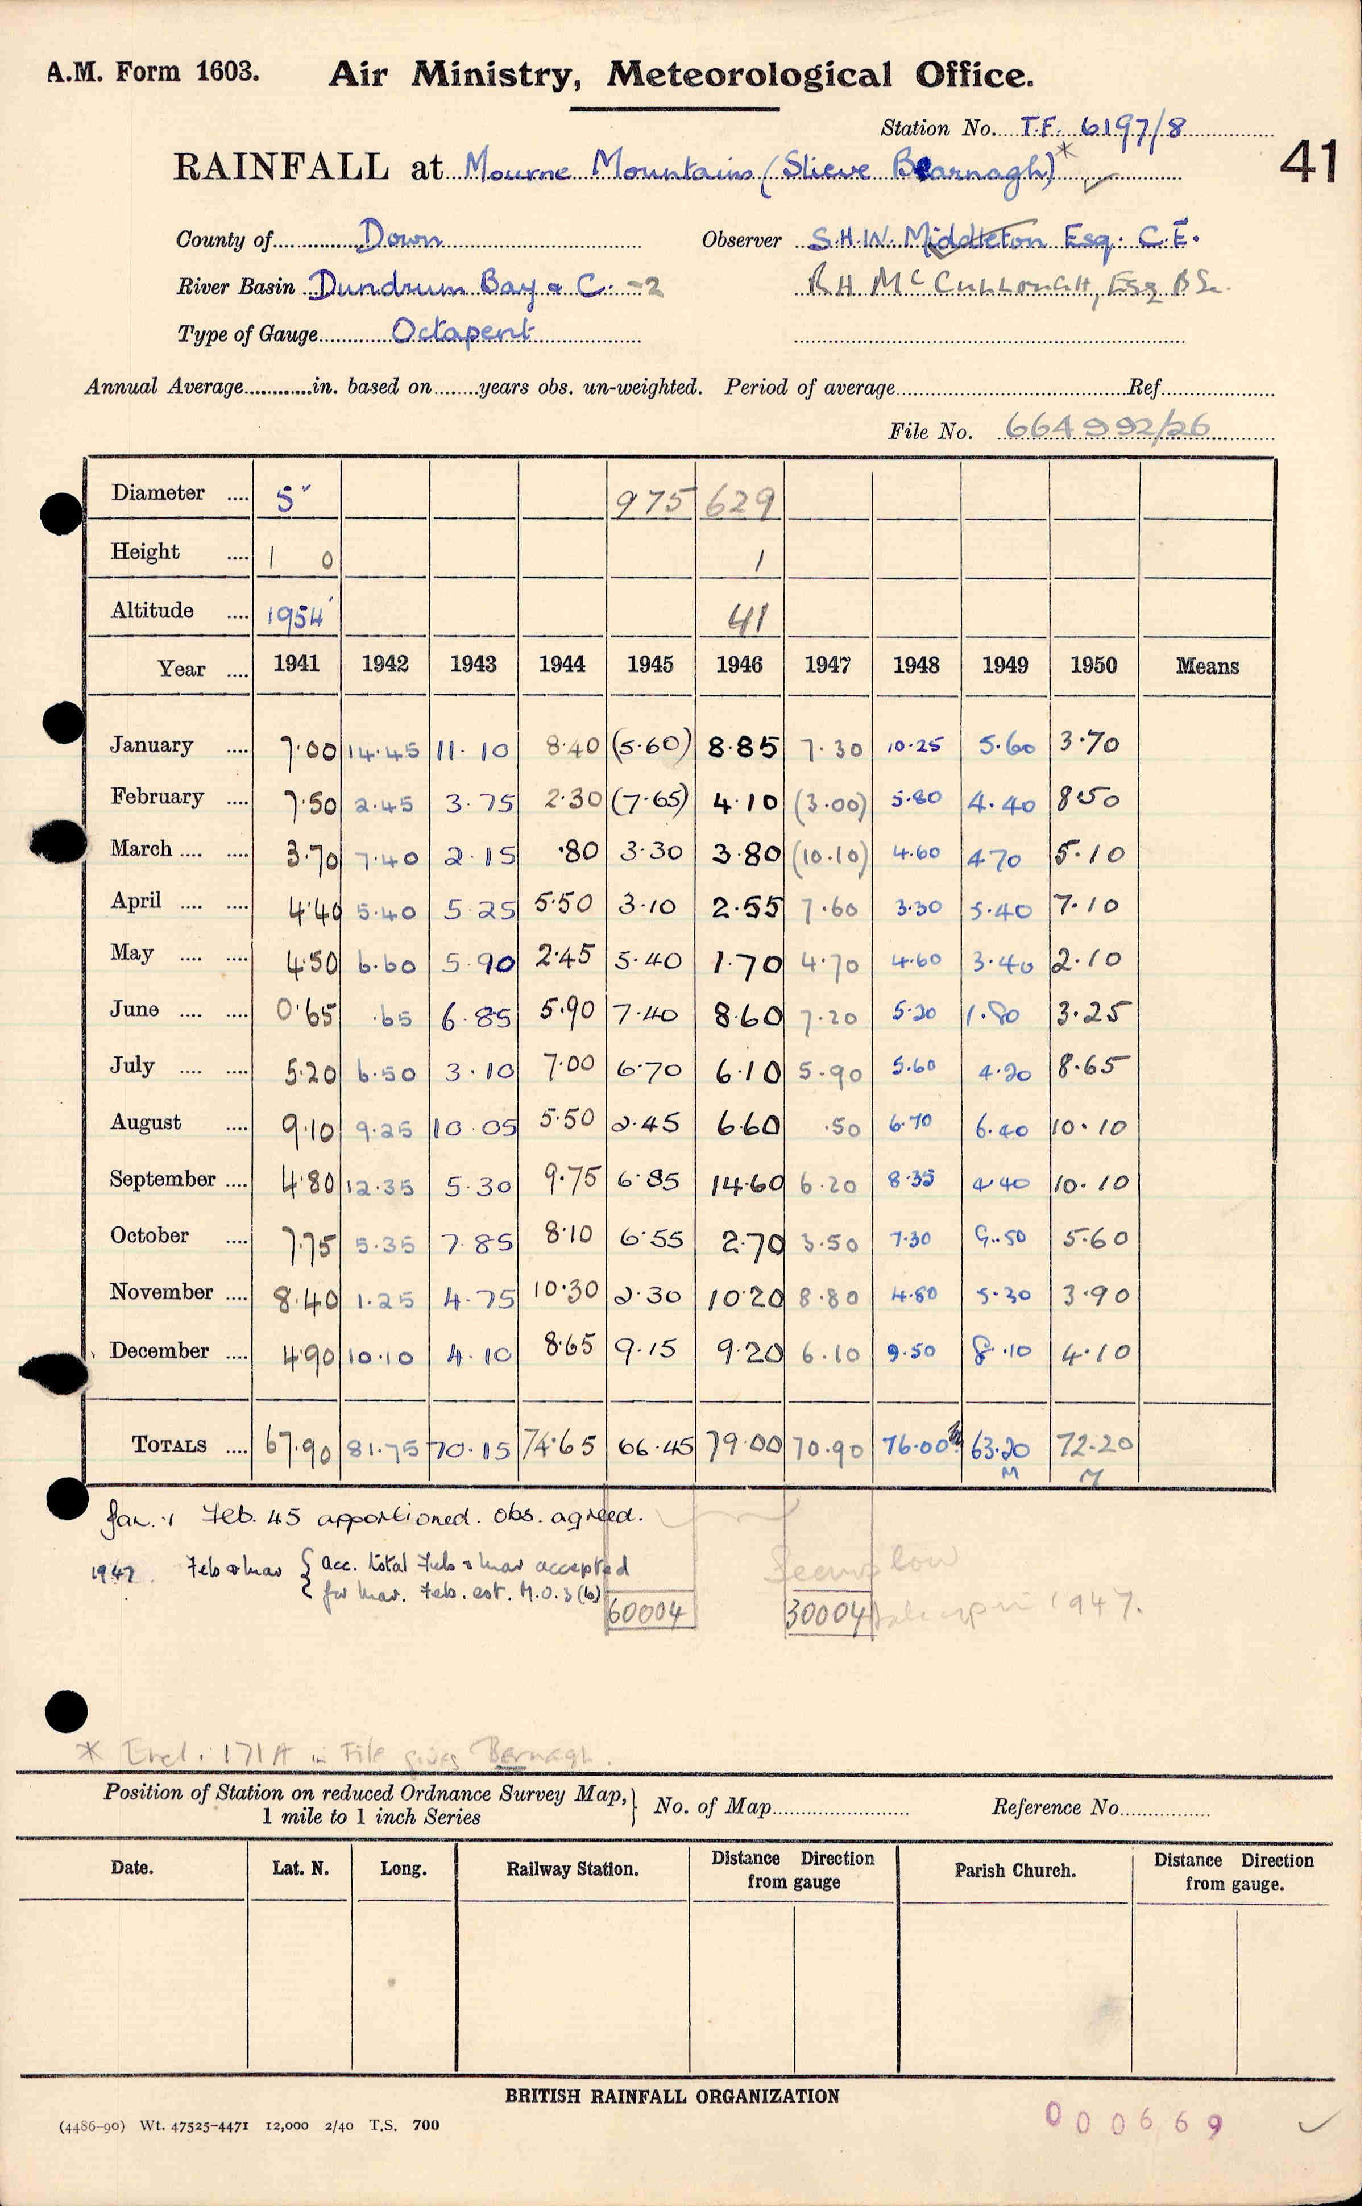 A.M. Form 1603. Air Ministry, Meteorological Office.
Station No. T.F. 6197/8
RAINFALL at Mourne Mountains (Slieve Bearnagh)* 41
County of Down Observer S.H.W. Middleton Esq. C.E.
River Basin Dundrum Bay & C. -2 R H McCullough, Esq BSc.
Type of Gauge Octapent
Annual Average............in. based on.......years obs. un-weighted. Period of average Ref.
File No. 664992/26
Diameter .... 5" 975 629
Height .... 1 0 1
Altitude .... 1954' 41
Year .... 1941 1942 1943 1944 1945 1946 1947 1948 1949 1950 Means
January .... 7.00 14.45 11.10 8.40 (5.60) 8.85 7.30 10.25 5.60 3.70
February .... 7.50 2.45 3.75 2.30 (7.65) 4.10 (3.00) 5.80 4.40 8.50
March .... .... 3.70 7.40 2.15 .80 3.30 3.80 (10.10) 4.60 4.70 5.10
April .... .... 4.40 5.40 5.25 5.50 3.10 2.55 7.60 3.30 5.40 7.10
May .... .... 4.50 6.60 5.90 2.45 5.40 1.70 4.70 4.60 3.40 2.10
June .... .... 0.65 .65 6.85 5.90 7.40 8.60 7.20 5.20 1.80 3.25
July .... .... 5.20 6.50 3.10 7.00 6.70 6.10 5.90 5.60 4.20 8.65
August .... 9.10 9.25 10.05 5.50 2.45 6.60 .50 6.70 6.40 10.10
September .... 4.80 12.35 5.30 9.75 6.85 14.60 6.20 8.35 4.40 10.10
October .... 7.75 5.35 7.85 8.10 6.55 2.70 3.50 7.30 9.50 5.60
November .... 8.40 1.25 4.75 10.30 2.30 10.20 8.80 4.80 5.30 3.90
December .... 4.90 10.10 4.10 8.65 9.15 9.20 6.10 9.50 8.10 4.10
TOTALS .... 67.90 81.75 70.15 74.65 66.45 79.00 70.90 76.00 63.20 72.20
M M
Jan. & Feb. 45 apportioned. obs. agreed.
1947. Feb & Mar { acc. total Feb & Mar accepted Seems low
for Mar. Feb. est. M.O.3(b)
60004 30004 in 1947.
* Encl. 171A in File gives Bernagh.
Position of Station on reduced Ordnance Survey Map, } No. of Map Reference No.
1 mile to 1 inch Series
Date. Lat. N. Long. Railway Station. Distance Direction from gauge Parish Church. Distance Direction from gauge.
BRITISH RAINFALL ORGANIZATION
(4486-90) Wt. 47525-4471 12,000 2/40 T.S. 700
000669